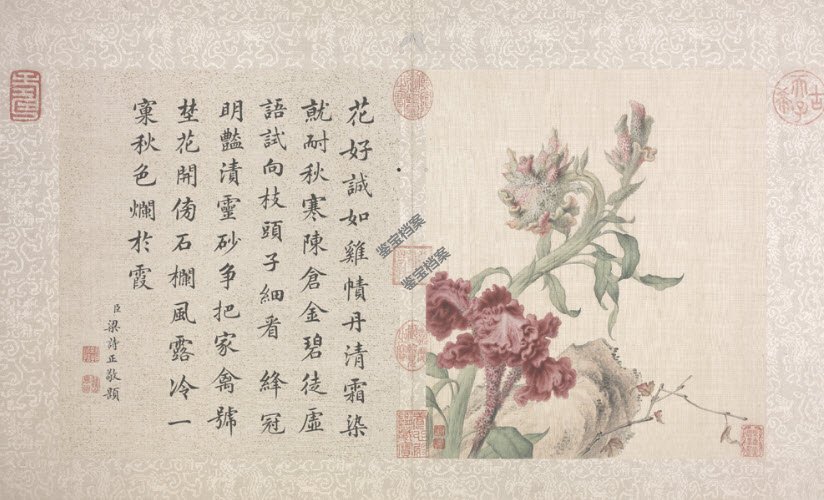 花好誠如雞幘丹清霜染
就耐秋寒陳倉金碧徒虛
語試向枝頭子細看 絳冠
明豔漬靈砂爭把家禽號
埜花開傍石欄風露冷一
窠秋色爛於霞
臣梁詩正敬題
古希天子
鉴宝档案
鉴宝档案